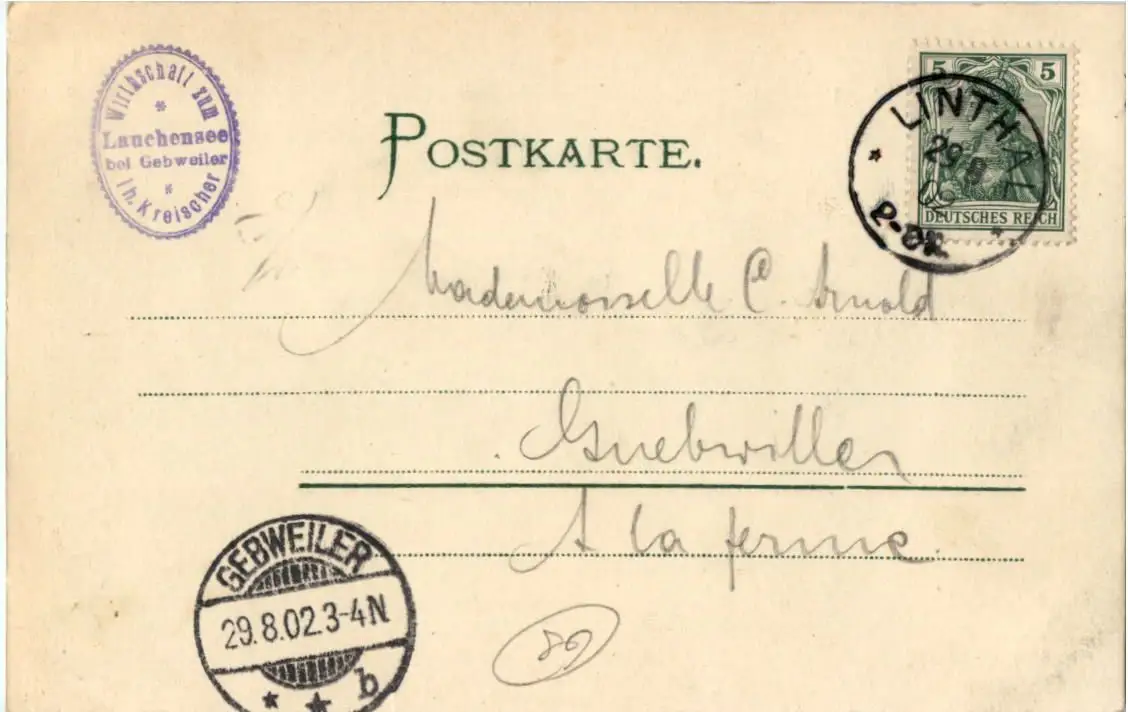 Wirthschaft zum
Lauchensee
bei Gebweiler
Th. Kreischer
POSTKARTE.
5 5
DEUTSCHES REICH
LINTHAL
29 8
02
Mademoiselle C. Arnold
Guebwiller
A la ferme.
GEBWEILER
29.8.02.3-4N
b